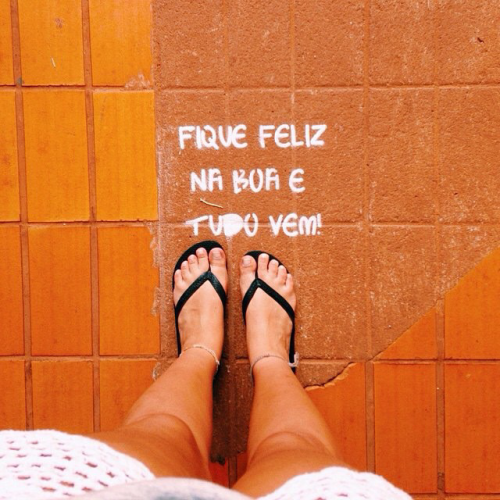 FIQUE FELIZ
NA BOA E
TUDO VEM!